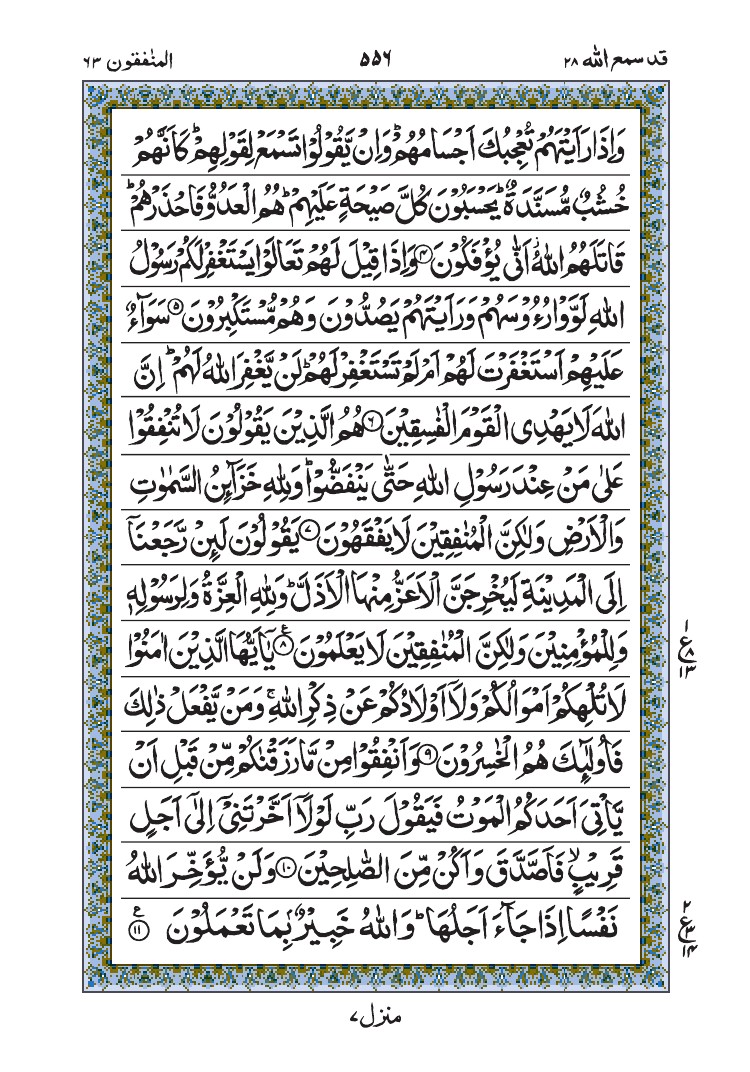 قد سمع الله ٢٨
٥٥٦
المنٰفقون ٦٣
وَاِذَا رَاَيْتَهُمْ تُعْجِبُكَ اَجْسَامُهُمْ ؕ وَاِنْ يَّقُوْلُوْا تَسْمَعْ لِقَوْلِهِمْ ؕ كَاَنَّهُمْ
خُشُبٌ مُّسَنَّدَةٌ ؕ يَحْسَبُوْنَ كُلَّ صَيْحَةٍ عَلَيْهِمْ ؕ هُمُ الْعَدُوُّ فَاحْذَرْهُمْ ؕ
قَاتَلَهُمُ اللّٰهُ ؗ اَنّٰى يُؤْفَكُوْنَ ﴿۴﴾ وَاِذَا قِيْلَ لَهُمْ تَعَالَوْا يَسْتَغْفِرْ لَكُمْ رَسُوْلُ
اللّٰهِ لَوَّوْا رُءُوْسَهُمْ وَرَاَيْتَهُمْ يَصُدُّوْنَ وَهُمْ مُّسْتَكْبِرُوْنَ ﴿۵﴾ سَوَآءٌ
عَلَيْهِمْ اَسْتَغْفَرْتَ لَهُمْ اَمْ لَمْ تَسْتَغْفِرْ لَهُمْ ؕ لَنْ يَّغْفِرَ اللّٰهُ لَهُمْ ؕ اِنَّ
اللّٰهَ لَا يَهْدِى الْقَوْمَ الْفٰسِقِيْنَ ﴿۶﴾ هُمُ الَّذِيْنَ يَقُوْلُوْنَ لَا تُنْفِقُوْا
عَلٰى مَنْ عِنْدَ رَسُوْلِ اللّٰهِ حَتّٰى يَنْفَضُّوْا ؕ وَلِلّٰهِ خَزَآئِنُ السَّمٰوٰتِ
وَالْاَرْضِ وَلٰكِنَّ الْمُنٰفِقِيْنَ لَا يَفْقَهُوْنَ ﴿۷﴾ يَقُوْلُوْنَ لَئِنْ رَّجَعْنَاۤ
اِلَى الْمَدِيْنَةِ لَيُخْرِجَنَّ الْاَعَزُّ مِنْهَا الْاَذَلَّ ؕ وَلِلّٰهِ الْعِزَّةُ وَلِرَسُوْلِهٖ
وَلِلْمُؤْمِنِيْنَ وَلٰكِنَّ الْمُنٰفِقِيْنَ لَا يَعْلَمُوْنَ ﴿۸﴾ ع يٰۤاَيُّهَا الَّذِيْنَ اٰمَنُوْا
١ ع ٨ ١٣
لَا تُلْهِكُمْ اَمْوَالُكُمْ وَلَاۤ اَوْلَادُكُمْ عَنْ ذِكْرِ اللّٰهِ ۚ وَمَنْ يَّفْعَلْ ذٰلِكَ
فَاُولٰٓئِكَ هُمُ الْخٰسِرُوْنَ ﴿۹﴾ وَاَنْفِقُوْا مِنْ مَّا رَزَقْنٰكُمْ مِّنْ قَبْلِ اَنْ
يَّاْتِىَ اَحَدَكُمُ الْمَوْتُ فَيَقُوْلَ رَبِّ لَوْلَاۤ اَخَّرْتَنِىْۤ اِلٰۤى اَجَلٍ
قَرِيْبٍ ۙ فَاَصَّدَّقَ وَاَكُنْ مِّنَ الصّٰلِحِيْنَ ﴿۱۰﴾ وَلَنْ يُّؤَخِّرَ اللّٰهُ
نَفْسًا اِذَا جَآءَ اَجَلُهَا ؕ وَاللّٰهُ خَبِيْرٌۢ بِمَا تَعْمَلُوْنَ ﴿۱۱﴾ ع
٢ ع ٣ ١٤
منزل ٧